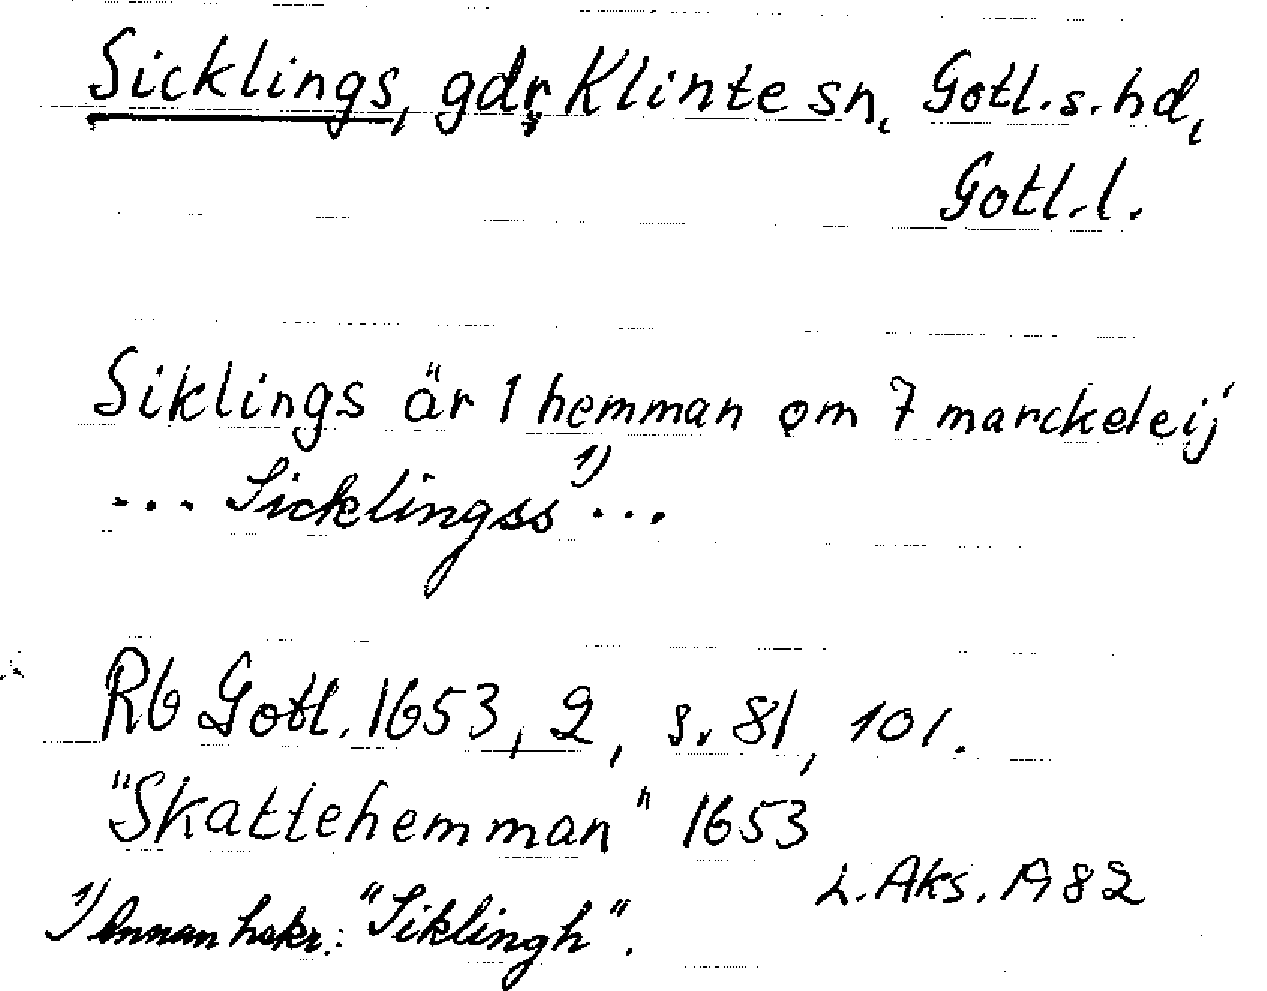 Sicklings, gdr, Klinte sn, Gotl. s. hd,
Gotl. l.
Siklings är 1 hemman om 7 marckeleij
... Sicklingss 1) ...
Rb Gotl. 1653, 2, s. 81, 101.
"Skattehemman" 1653
L. Aks. A 82
1) Annan hskr.: "Siklingh".